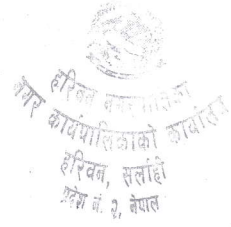 हरिवन नगरपालिका
नगर कार्यपालिकाको कार्यालय
हरिवन, सर्लाही
प्रदेश नं. २, नेपाल